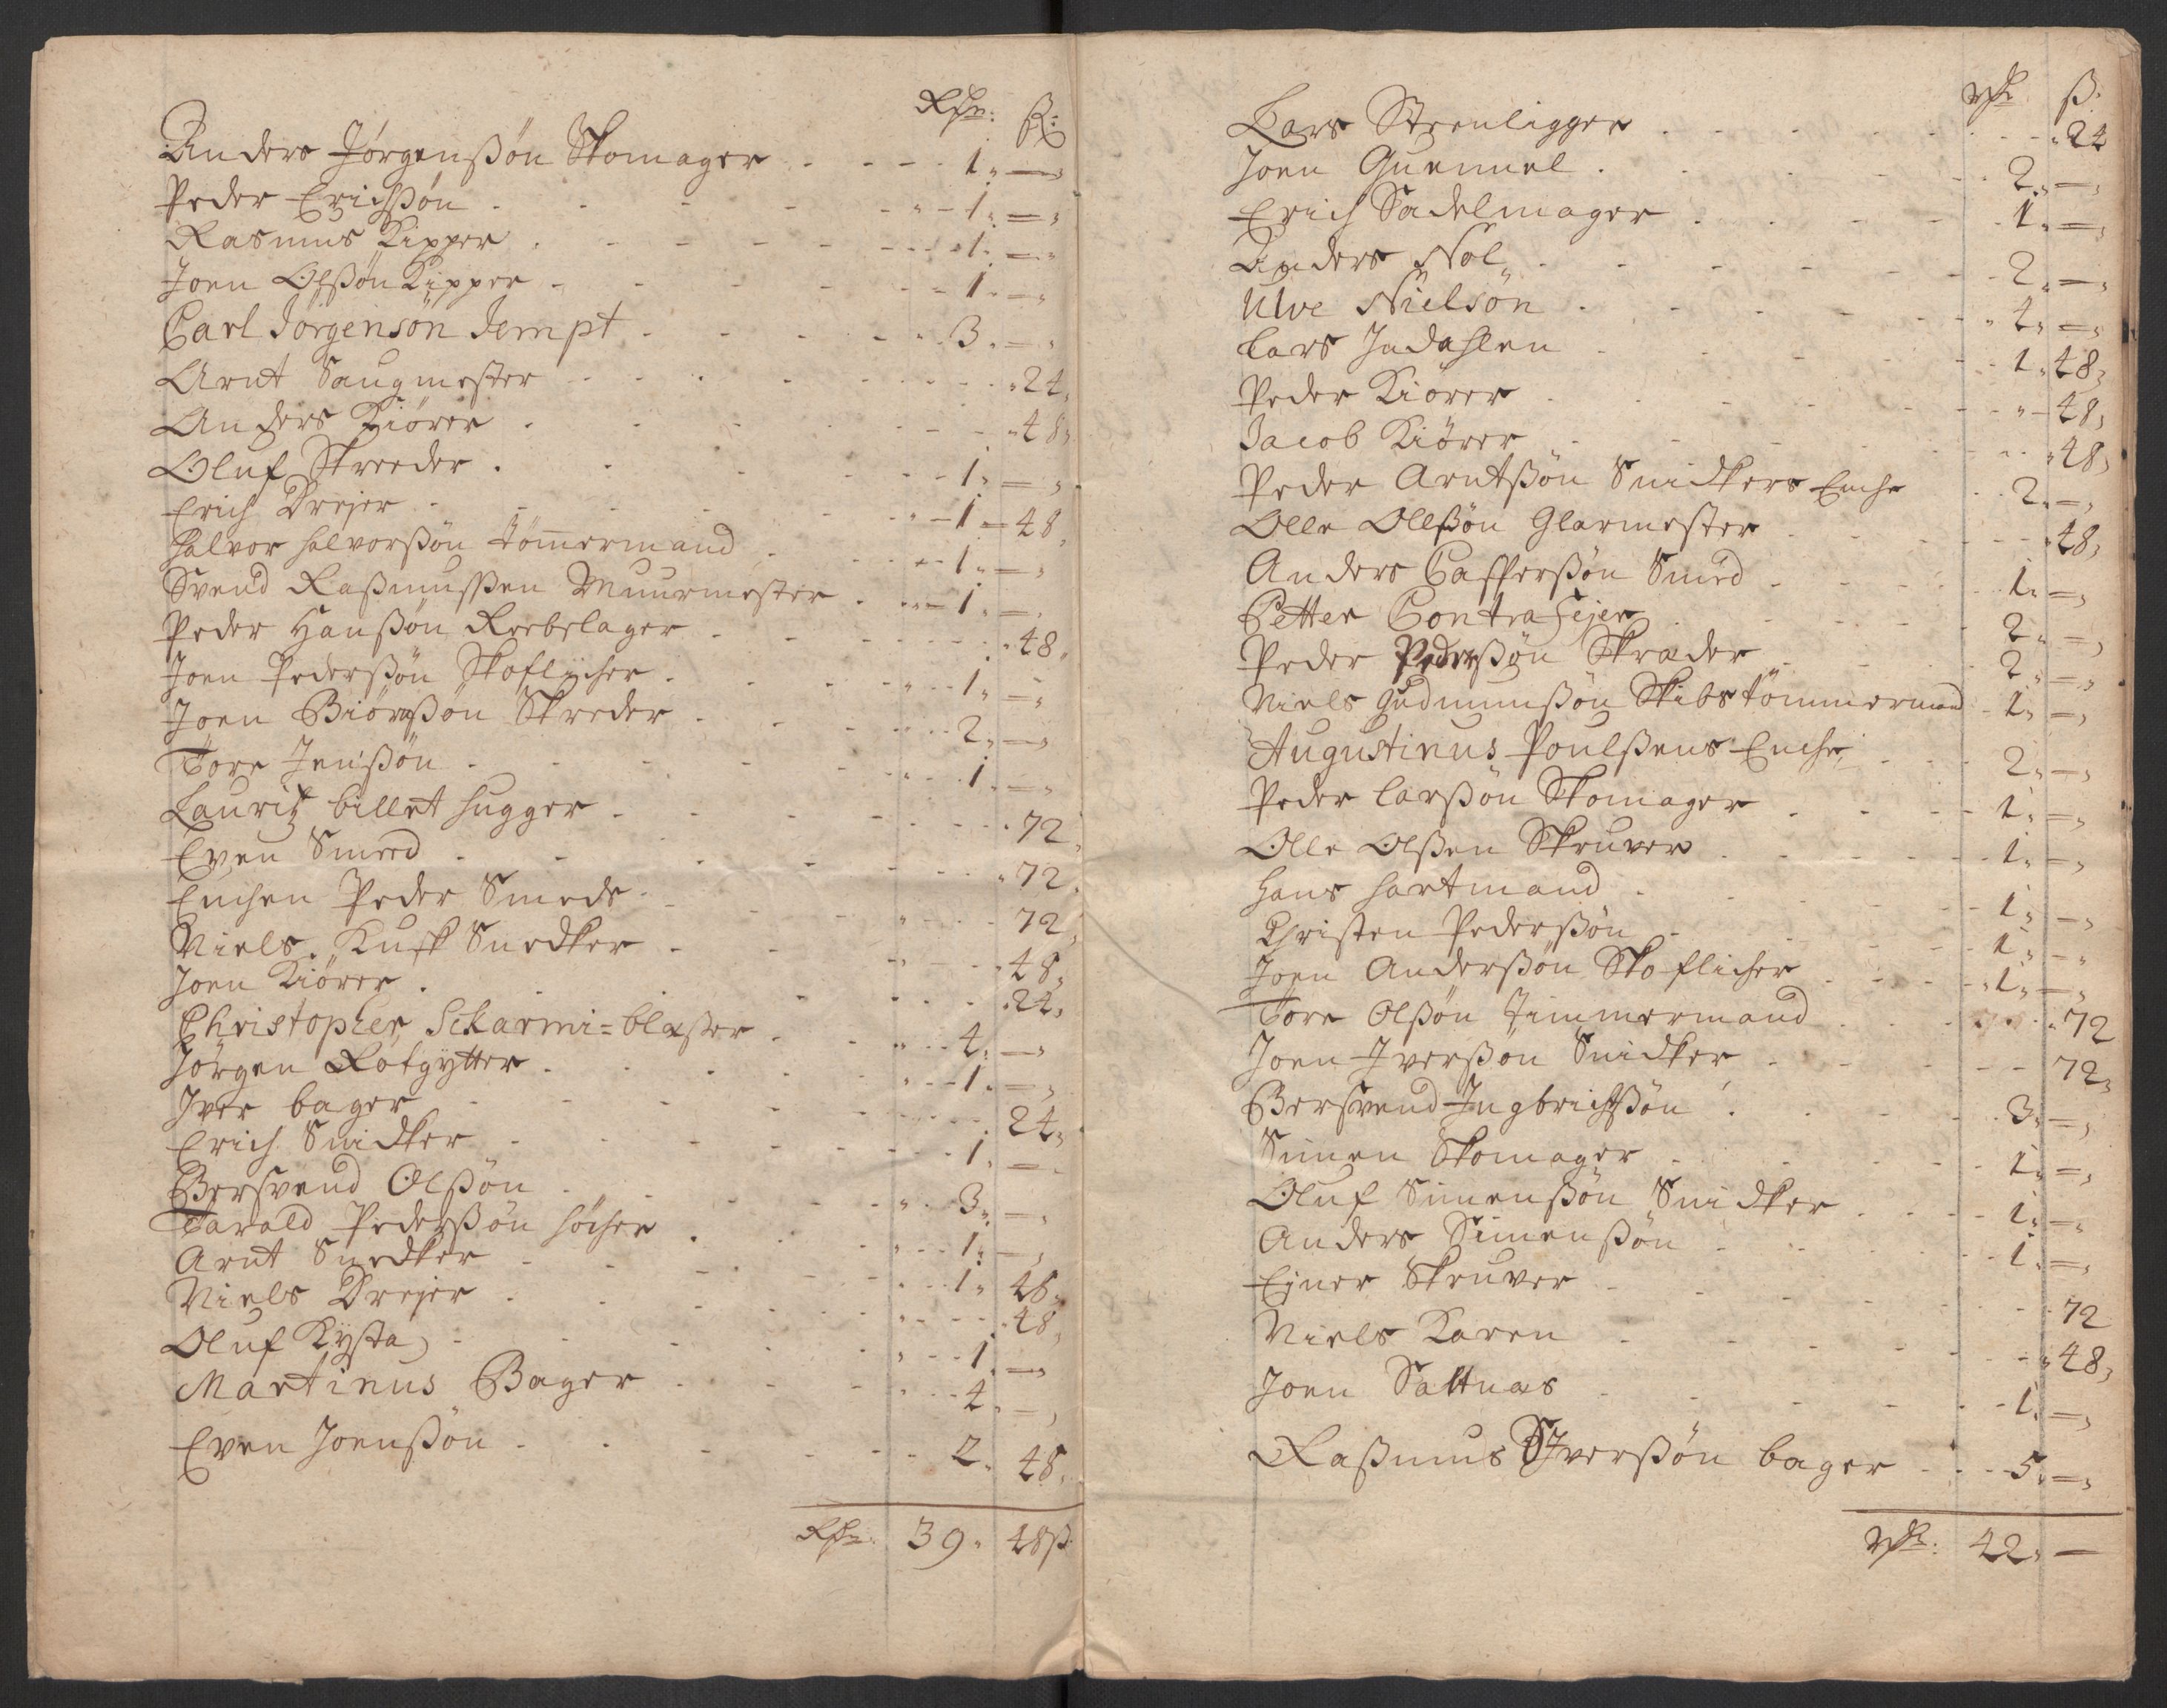 Rdr: ß:
Anders Jørgenßön Skomager . . - - - 1. —
Peder Erichßön . - - - - 1. —
Rasmus Kipper . - - - - 1. —
Joen Olßön Kipper - - - - 1. —
Carl Jörgensön Jempt - - - - 3. —
Arnt Saugmester - - - - 24.
Anders Kiörer . - - - - 48.
Oluf Skreder . - - - - 1. —
Erich Dreÿer - - - - 1 — 48.
Halvor Halvorßön tömmermand . - - 1. —
Svend Raßmußen Muurmester . - - 1. —
Peder Hanßön Reebslager - - - - 48.
Joen Pederßön Skoflicher . - - - 1. —
Joen Biörnßön Skreder - - - - 2. —
Tore Jenßön . - - - - 1. —
Lauritz billet hugger . - - - 72.
Even Smed . - - - - 72.
Enchen Peder Smeds - - - - 72.
Niels Kusk Snedker - - - - 48.
Joen Kiörer . - - - - 24.
Christopher Scharmi=blaßer . - - 4. —
Jörgen Rotgytter . - - - - 1. —
Iver bager - - - - 24.
Erich Snidker - - - - 1. —
Bersvend Olßön . - - - - 3. —
Tarald Pederßön höcher . - - - 1. —
Arnt Snedker - - - - 1. 48.
Niels Dreÿer . - - - - 48.
Oluf Kysta - - - - 1. —
Martinus Bager - - - - 4. —
Even Joenßön . - - - - 2. 48.
Rdr: 39. 48 ß.
rdr ß.
Lars Steenligger . - - - - 24
Joen Quennel . - - - - 2. —
Erich Sadelmager . - - - - 1. —
Anders Nol - - - - 2. —
Ulve Nielsön . - - - - 4. —
Lars Indahlen . - - - - 1. 48.
Peder Kiörer . - - - - 48.
Jacob Kiörer - - - - 48.
Peder Arntßön Snidkers Enche - - 2. —
Olle Olleßön Glarmester - - - 48.
Anders Casperßön Smed . - - - 1. —
Petter Contrafejer . - - - - 2. —
Peder Pederßön Skræder - - - 2. —
Niels Gudmunßön Skibs tömmermand - 1. —
Augustinus Poulßens Enche - - - 2. —
Peder Larßön Skomager . - - - 1. —
Olle Olßen Skruver . - - - - 1. —
Hans Hartmand . - - - - 1. —
Christen Pederßön - - - - 1. —
Joen Anderßön Skoflicher - - - 1. —
Tore Olßön Timmermand . - - - 72
Joen Iverßön Snidker - - - - 72.
Bersvend Ingbrichtßön . - - - 3. —
Simen Skomager . - - - - 1. —
Oluf Simenßön Snidker . - - - 1. —
Anders Simenßön . - - - - 1. —
Ejner Skruver - - - - 72
Niels Karen - - - - 48.
Joen Saltnas - - - - 1. —
Raßmus Iverßön bager - - - 5. —
rdr: 42. —